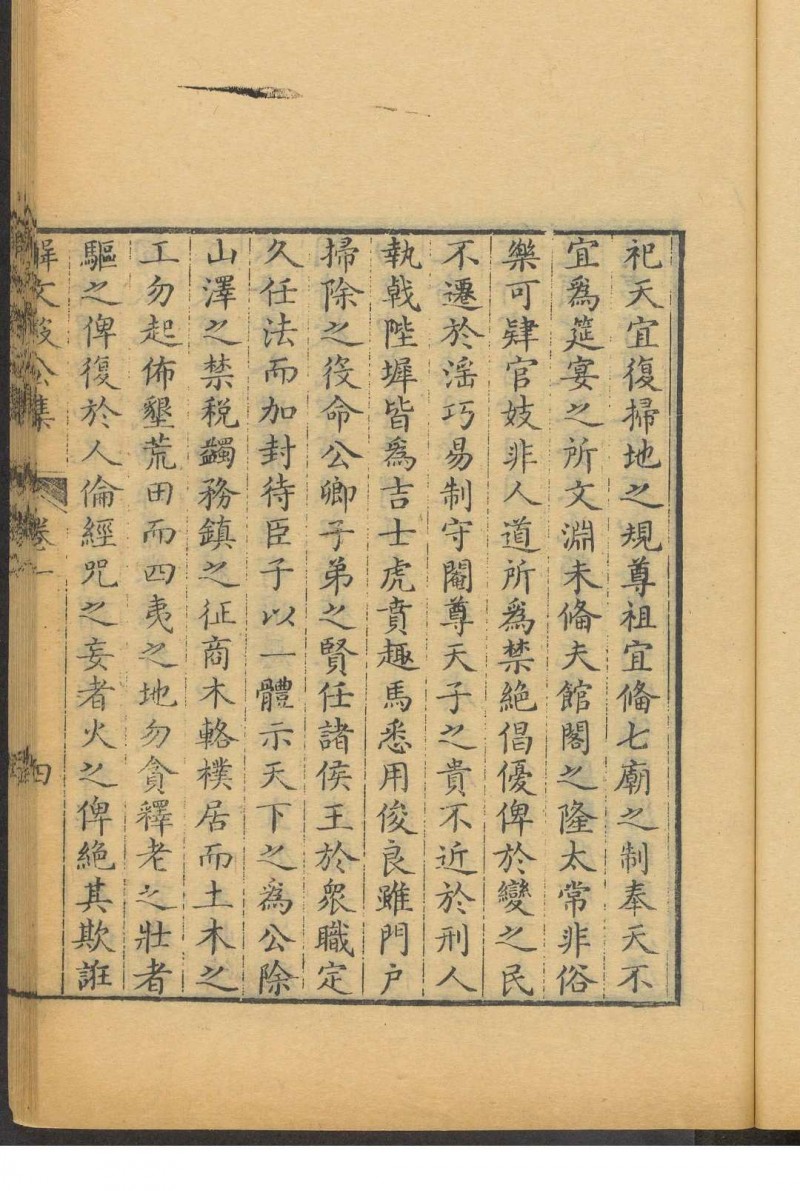 祀天宜復掃地之規尊祖宜俻七廟之制奉天不
宜爲筵宴之所文淵未俻夫館閣之隆太常非俗
樂可肄官妓非人道所爲禁絶倡優俾於變之民
不遷於滛巧易制守閹尊天子之貴不近於刑人
執戟陛墀皆爲吉士虎賁趣馬悉用俊良雖門户
掃除之役命公卿子弟之賢任諸侯王於衆職定
久任法而加封待臣子以一體示天下之爲公除
山澤之禁税蠲務鎮之征商木輅樸居而土木之
工勿起佈墾荒田而四夷之地勿貪釋老之壯者
驅之俾復於人倫經咒之妄者火之俾絶其欺誑
解文毅公集
卷一
四